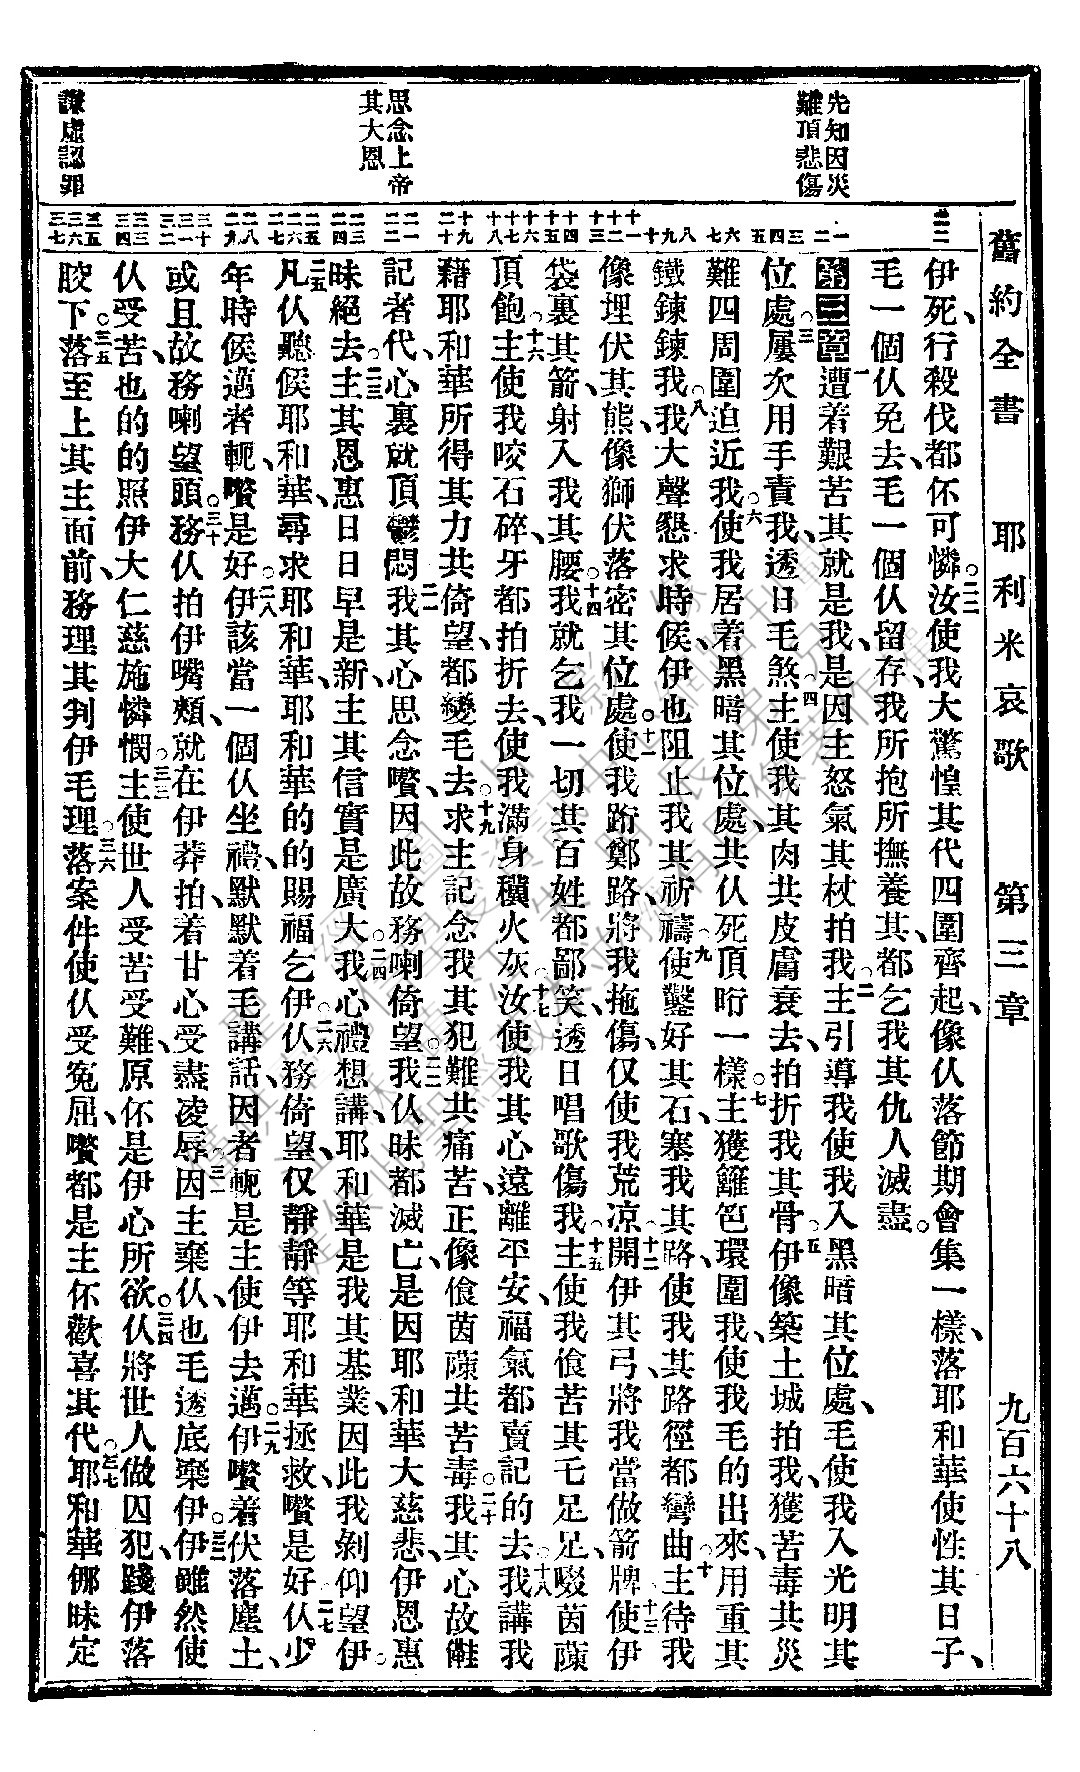 舊約全書 耶利米哀歌 第三章 九百六十八
先知因災
難頂悲傷
思念上帝
其大恩
謙虛認罪
伊死、行殺伐都伓可憐。二二汝使我大驚惶其代、四圍齊起、像仈落節期會集一樣、落耶和華使性其日子、
毛一個仈免去、毛一個仈留存、我所抱所撫養其、都乞我其仇人滅盡。
第三章一遭着艱苦其就是我、是因主怒氣其杖拍我。二主引導我使我入黑暗其位處、毛使我入光明其
位處。三屢次用手責我、透日毛煞。四主使我其肉共皮膚衰去、拍折我其骨。五伊像築土城拍我、獲苦毒共災
難四周圍迫近我。六使我居着黑暗其位處、共仈死頂昉一樣。七主獲籬笆環圍我、使我毛的出來、用重其
鐵鍊鍊我。八我大聲懇求時候、伊也阻止我其祈禱。九使鑿好其石、塞我其路、使我其路徑都彎曲。十主待我
像埋伏其熊、像獅伏落密其位處。十一使我跨鄭路、將我拖傷、仅使我荒凉。十二開伊其弓、將我當做箭牌。十三使伊
袋裏其箭、射入我其腰。十四我就乞我一切其百姓都鄙笑、透日唱歌傷我。十五主使我飡苦其乇足足、啜茵蔯
頂飽。十六主使我咬石碎、牙都拍折去、使我滿身穢火灰。十七汝使我其心遠離平安、福氣都賣記的去。十八我講、我
藉耶和華所得其力共倚望、都變毛去。十九求主記念我其犯難共痛苦、正像飡茵蔯共苦毒。二十我其心故𣍐
記者代、心裏就頂鬱悶。二一我其心思念嚽、因此故務喇倚望。二二我仈昧都滅亡、是因耶和華大慈悲、伊恩惠
昧絕去。二三主其恩惠日日早是新、主其信實是廣大。二四我心禮想講、耶和華是我其基業、因此我剝仰望伊。
二五凡仈聽候耶和華、尋求耶和華、耶和華的的賜福乞伊。二六仈務倚望、仅靜靜等耶和華拯救、嚽是好。二七仈少
年時候邁者軛、嚽是好。二八伊該當一個仈坐禮、默默着毛講話、因者軛是主使伊去邁。二九伊嚽着伏落塵土、
或且故務喇望頭。三十務仈拍伊嘴頰、就在伊莽拍、着甘心受盡凌辱。三一因主棄仈、也毛透底棄伊。三二伊雖然使
仈受苦、也的的照伊大仁慈施憐憫。三三主使世人受苦受難、原伓是伊心所欲。三四仈將世人做囚犯、踐伊落
骹下。三五落至上其主面前、務理其判伊毛理。三六落案件使仈受冤屈、嚽都是主伓歡喜其代。三七耶和華㑚昧定